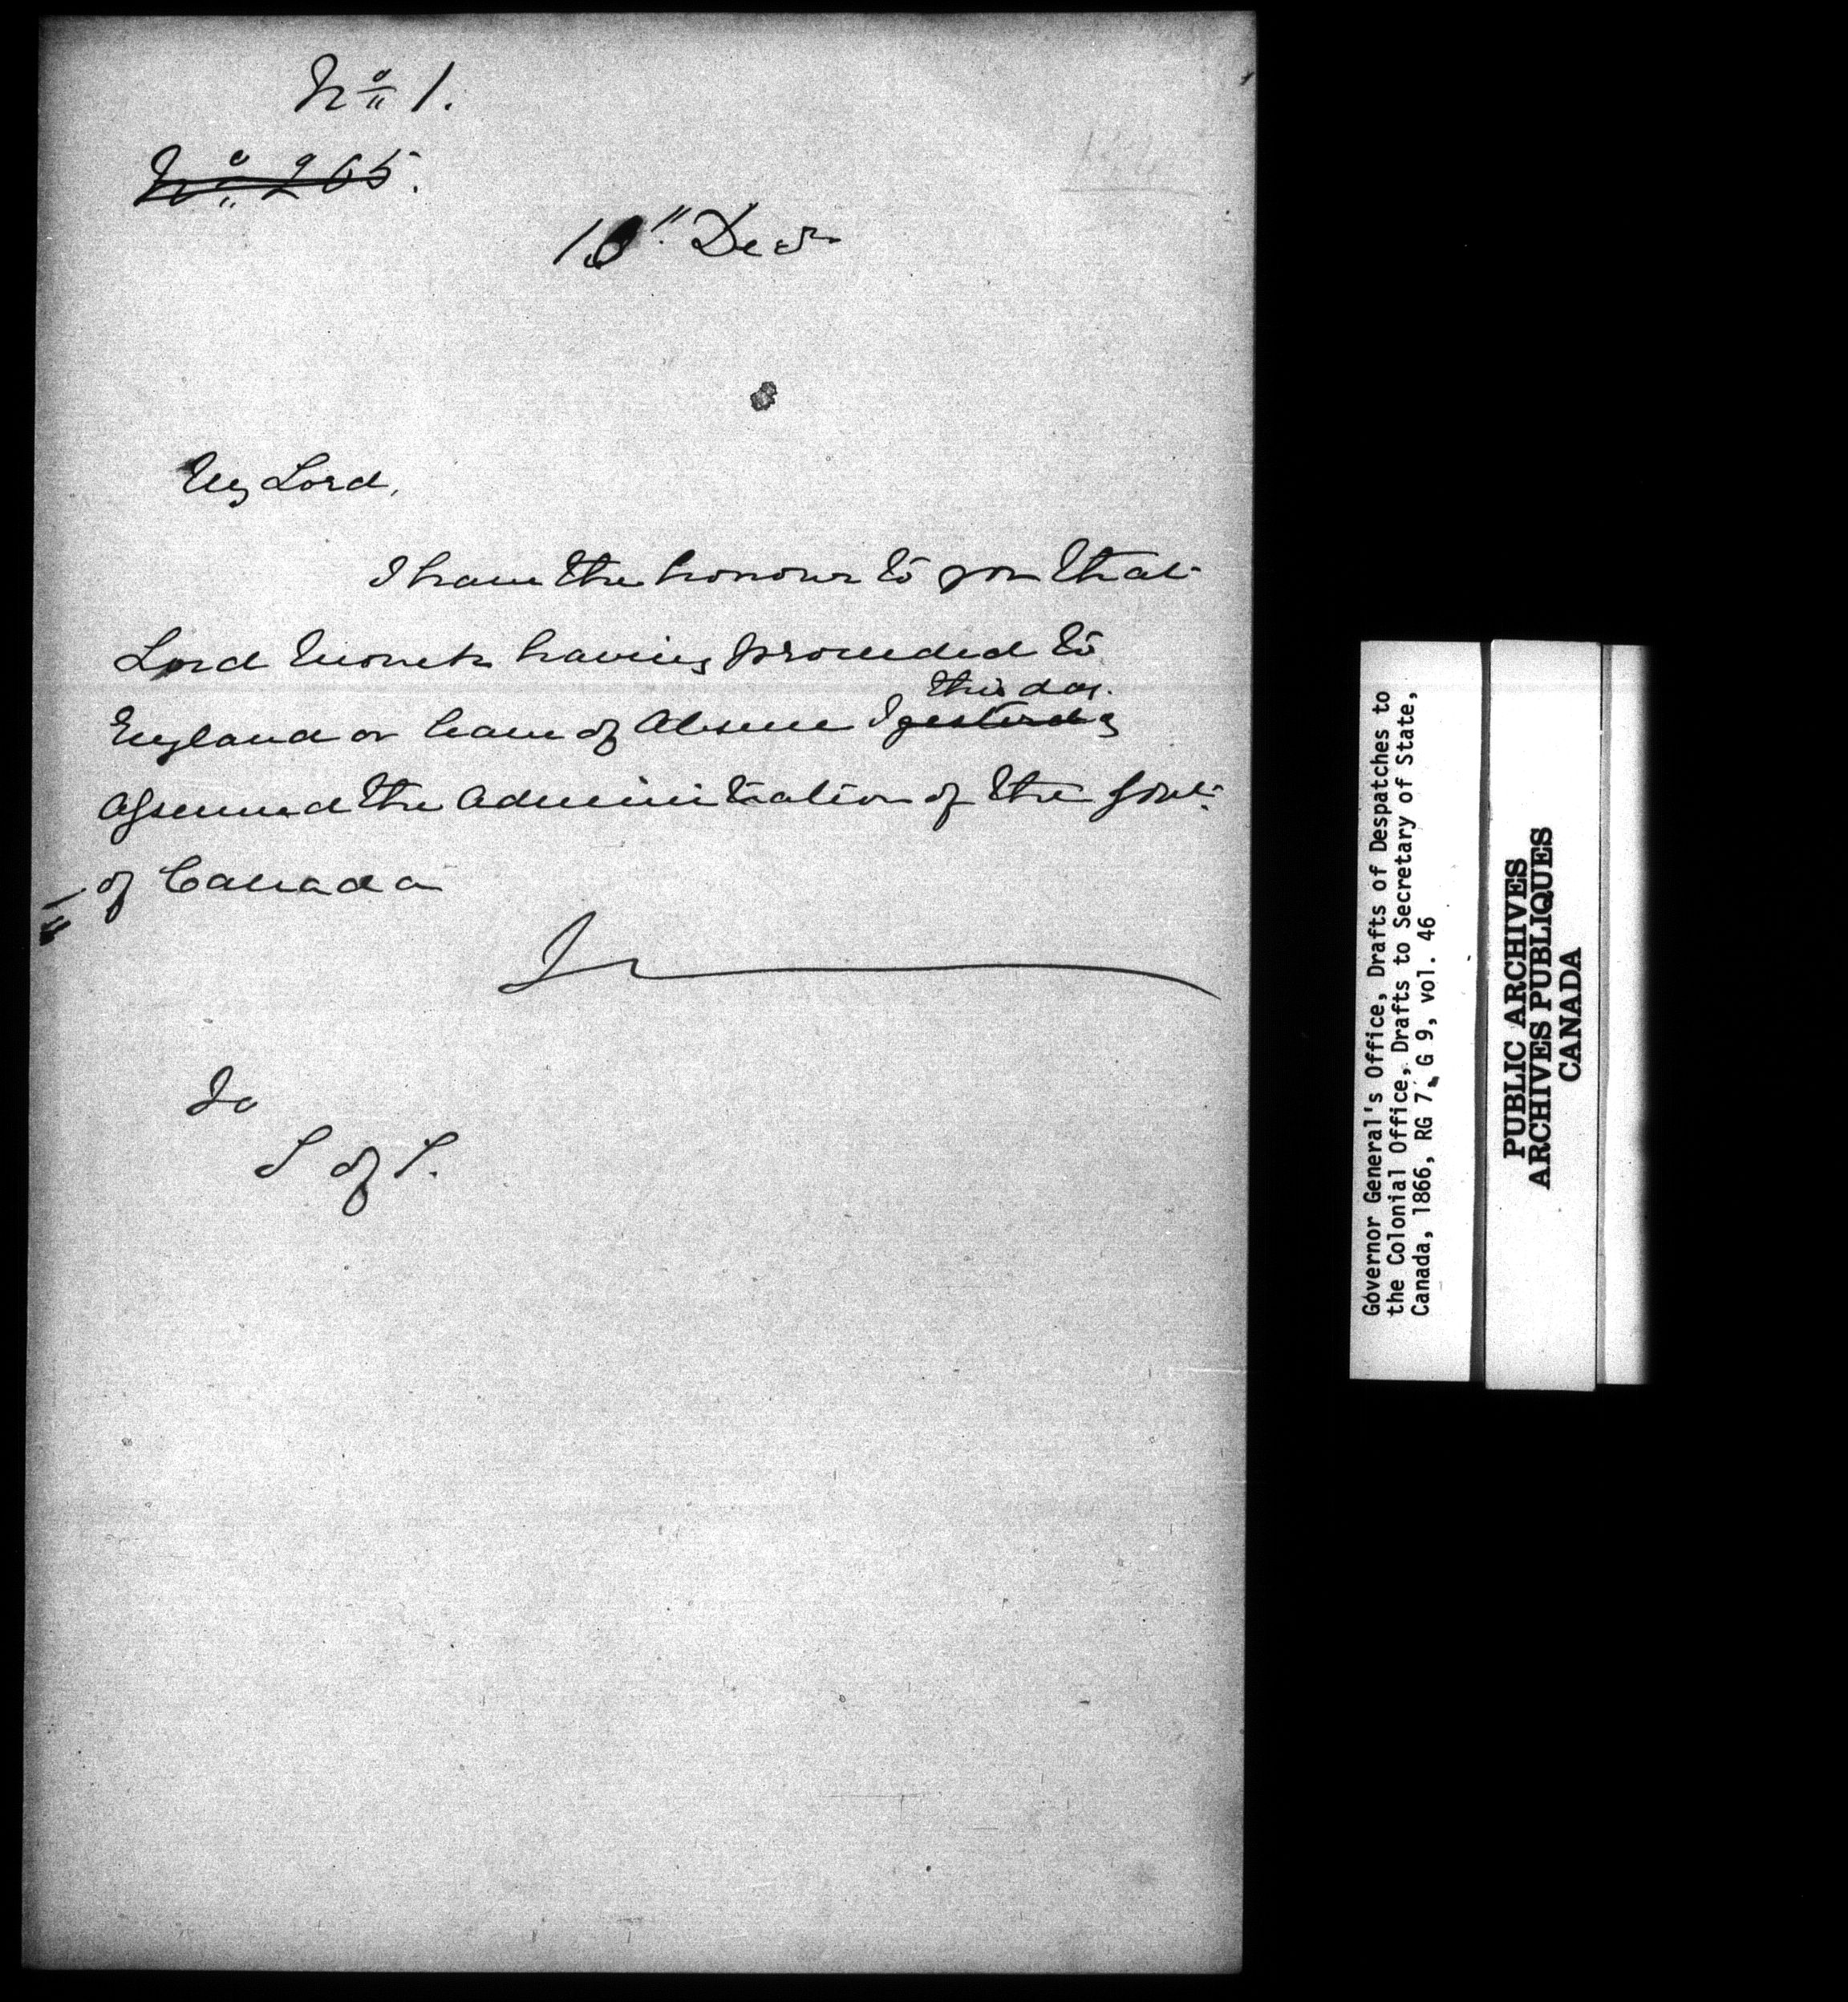 No 1.
No 265.
10" Decr
My Lord,
I have the honour to you that
Lord Monck having proceeded to
this day.
England on leave of Absence I yesterday
assumed the Administration of the Govt:
of Canada
I
To
S of S.
Governor General's Office, Drafts of Despatches to
the Colonial Office, Drafts to Secretary of State,
Canada, 1866, RG 7, G 9, vol. 46
PUBLIC ARCHIVES
ARCHIVES PUBLIQUES
CANADA